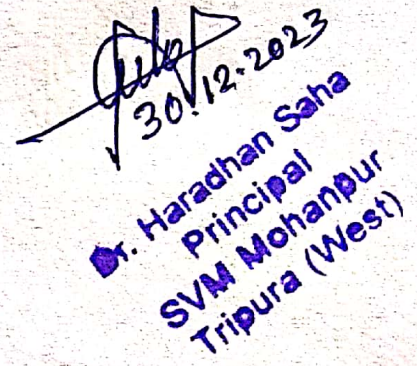 30.12.2023
Dr. Haradhan Saha
Principal
SVM Mohanpur
Tripura (West)